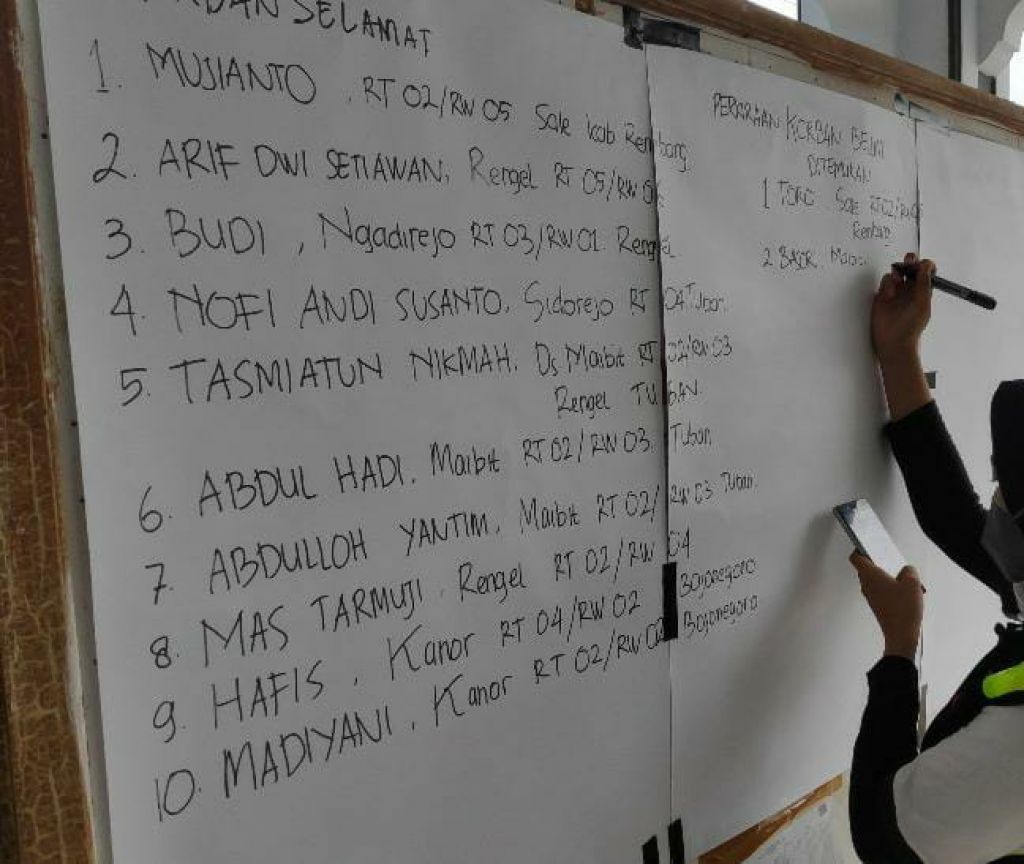 SELAMAT
1. MUJIANTO, RT 02/RW 05 Sale kab Rembang
2. ARIF DWI SETIAWAN, Rengel RT 05/RW
3. BUDI, Ngadirejo RT 03/RW 01. Rengel
4. NOFI ANDI SUSANTO, Sidorejo RT 04 Tuban.
5. TASMIATUN NIKMAH. Ds Maibit RT 02/RW 03
Rengel TUBAN.
6. ABDUL HADI. Maibit RT 02/RW 03. Tuban.
7. ABDULLOH YANTIM. Maibit RT 02/RW 03 Tuban.
8. MAS TARMUJI. Rengel RT 02/RW 04
9. HAFIS. Kanor RT 04/RW 02 Bojonegoro
10. MADIYANI. Kanor RT 02/RW 02 Bojonegoro
KORBAN BELUM
DITEMUKAN
1 TORO Sale RT 02/RW
Rembang
2 BASIR.